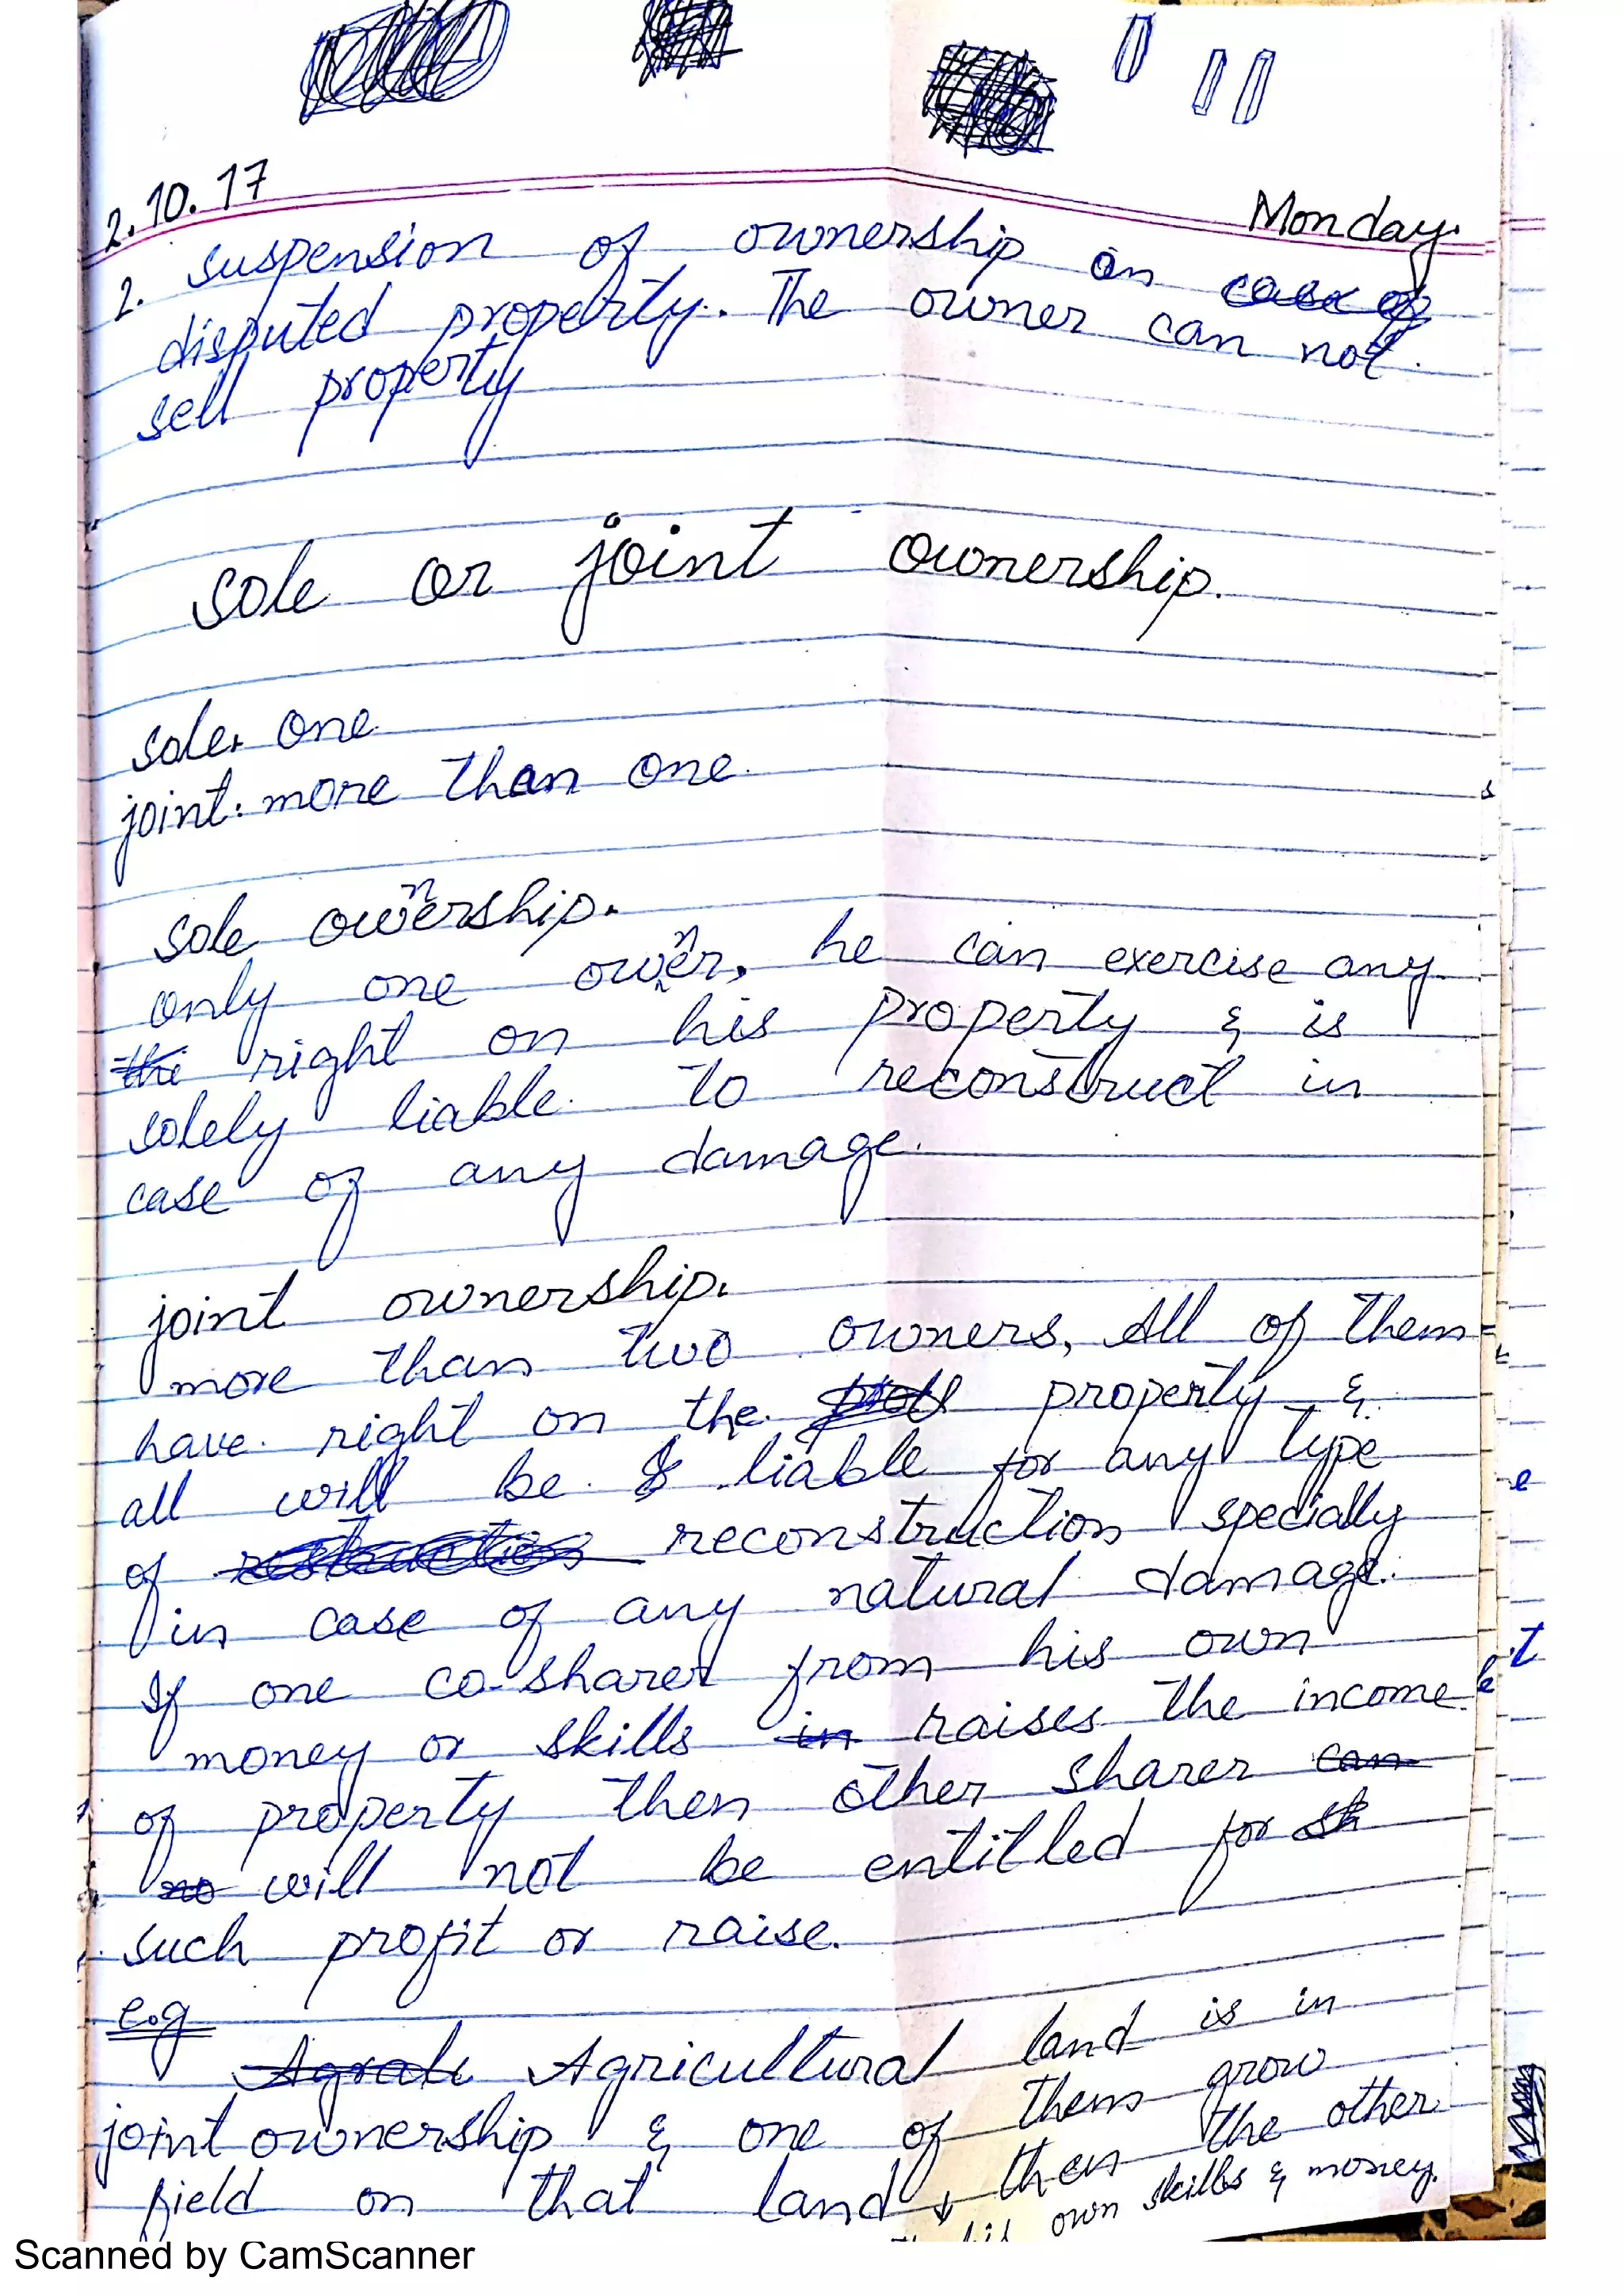 2.10.17 Monday.
2. suspension of ownership on case of
disputed property. The owner can not
sell property
sole or joint ownership.
sole. one
joint: more than one.
sole ownership.
only one owner, he can exercise any
the right on his property & is
solely liable to reconstruct in
case of any damage.
joint ownership.
more than two owners, All of them
have right on the property &
all will be liable for any type
of reconstruction specially
in case of any natural damage.
If one co-sharer from his own
money or skills in raises the income
of property then other sharer can
no will not be entitled for sh
such profit or raise.
e.g
Agricultural land is in
joint ownership & one of them grow
field on that land ↓ then the other
his own skills & money.
Scanned by CamScanner